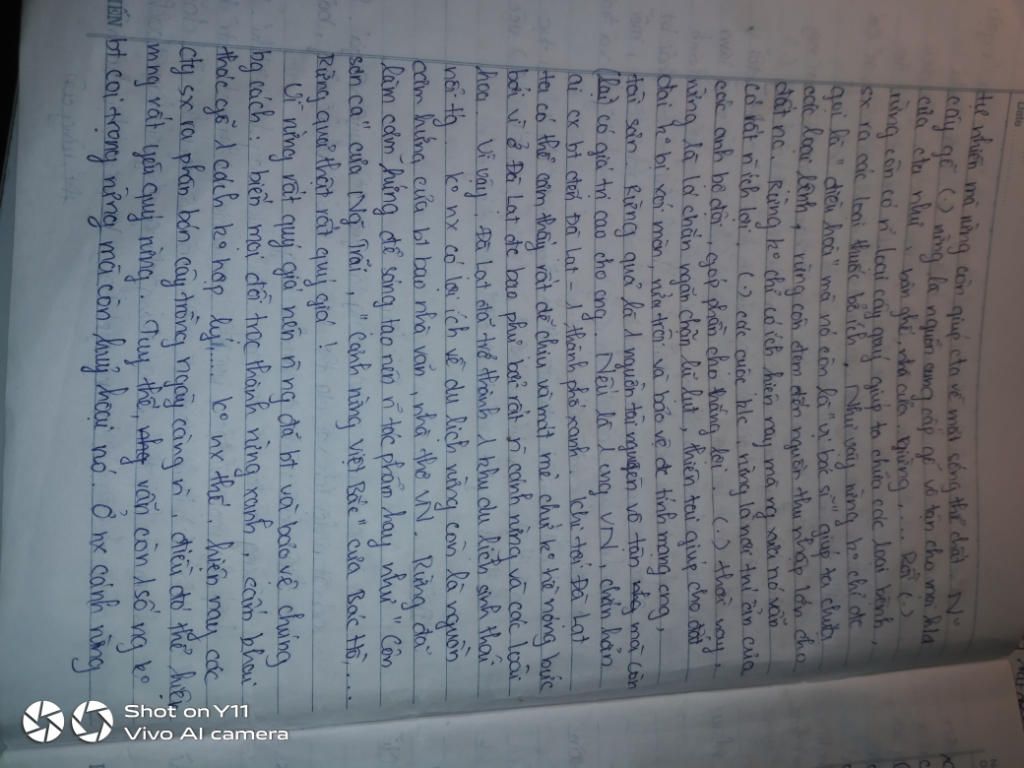 tự nhiên mà rừng còn giúp cta về mặt sống thể chất. Nn
cây gỗ (.) rừng là nguồn cung cấp gỗ vô tận cho mọi
của cta như: bàn ghế, nhà cửa, giường,... Rồi (.)
rừng còn có n loại cây quý giúp ta chữa các loại bệnh,
sx ra các loại thuốc bổ ích. Như vậy rừng ko chỉ đc
gọi là "điều hoà" mà nó còn là "vị bác sĩ" giúp ta chữa
các loại bệnh, rừng còn đem đến nguồn thu nhập lớn cho
đất nc. Rừng ko chỉ có ích hiện nay mà ng xưa nó vẫn
có rất n ích lợi. (.) các cuộc k/c, rừng là nơi trú ẩn của
các anh bộ đội, góp phần cho thắng lợi. (.) thời nay,
rừng là lá chắn ngăn chặn lũ lụt, thiên tai giúp cho đất
đai ko bị xói mòn, rửa trôi và bảo vệ đc tính mạng cng,
tài sản. Rừng quả là 1 nguồn tài nguyên vô tận mà còn
có giá trị cao cho cng. Nếu là 1 ng VN, chắn hẳn
ai cx bt đến Đà Lạt - 1 thành phố xanh. Khi tới Đà Lạt
ta có thể cảm thấy rất dễ chịu và mát mẻ chứ ko hề nóng bức
bởi vì ở Đà Lạt đc bao phủ bởi rất n cánh rừng và các loài
hoa. Vì vậy, Đà Lạt đã trở thành 1 khu du lịch sinh thái
nổi tg. Ko nx có lợi ích về du lịch rừng còn là nguồn
cảm hứng của bt bao nhà văn, nhà thơ VN. Rừng đã
làm cảm hứng để sáng tạo nên n tác phẩm hay như "Côn
sơn ca" của Ng Trãi, "Cảnh rừng Việt Bắc" của Bác Hồ,...
Rừng quả thật rất quý giá!
Vì rừng rất quý giá nên n ng đã bt và bảo vệ chúng
bg cách: biến mọi đồi trọc thành rừng xanh, cấm khai
thác gỗ 1 cách ko hợp lý,... ko nx thế, hiện nay các
cty sx ra phân bón cây trồng ngày càng n, điều đó thể hiện
mng rất yêu quý rừng. Tuy thế, vẫn còn 1 số ng ko
bt coi trọng rừng mà còn huỷ hoại nó. Ở nx cánh rừng
Shot on Y11
Vivo AI camera